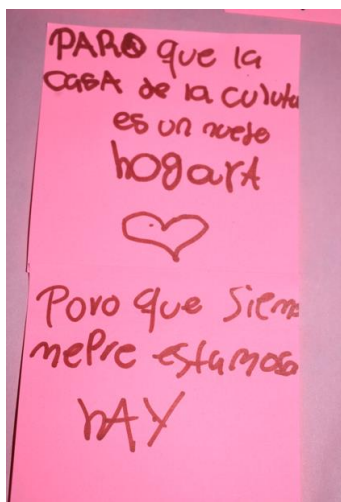 PARA que la
CASA de la culuta
es un nuedo
hogarA
Poro que siem
mepre estamosa
hAY